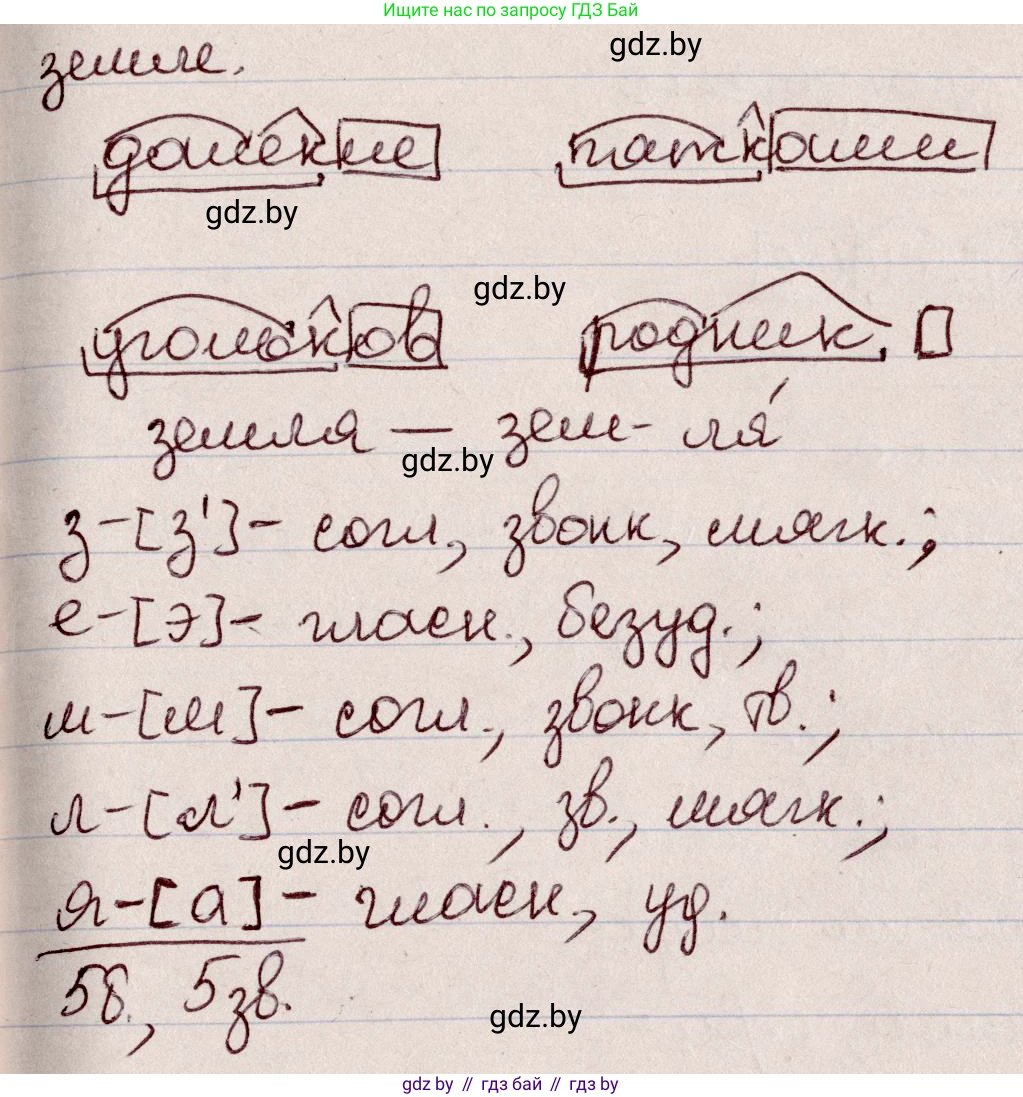 Ищите нас по запросу ГДЗ Бай
gdz.by
земле.
далёкие пятками
gdz.by
gdz.by
уголков родник
земля — зем-ля́
gdz.by
з-[з']- согл, звонк, мягк.;
е-[э]- гласн., безуд.;
м-[м]- согл., звонк, тв.;
л-[л']- согл., зв., мягк.;
gdz.by
я-[а]- гласн., уд.
5б., 5зв.
gdz.by
gdz by // гдз бай // gdz by